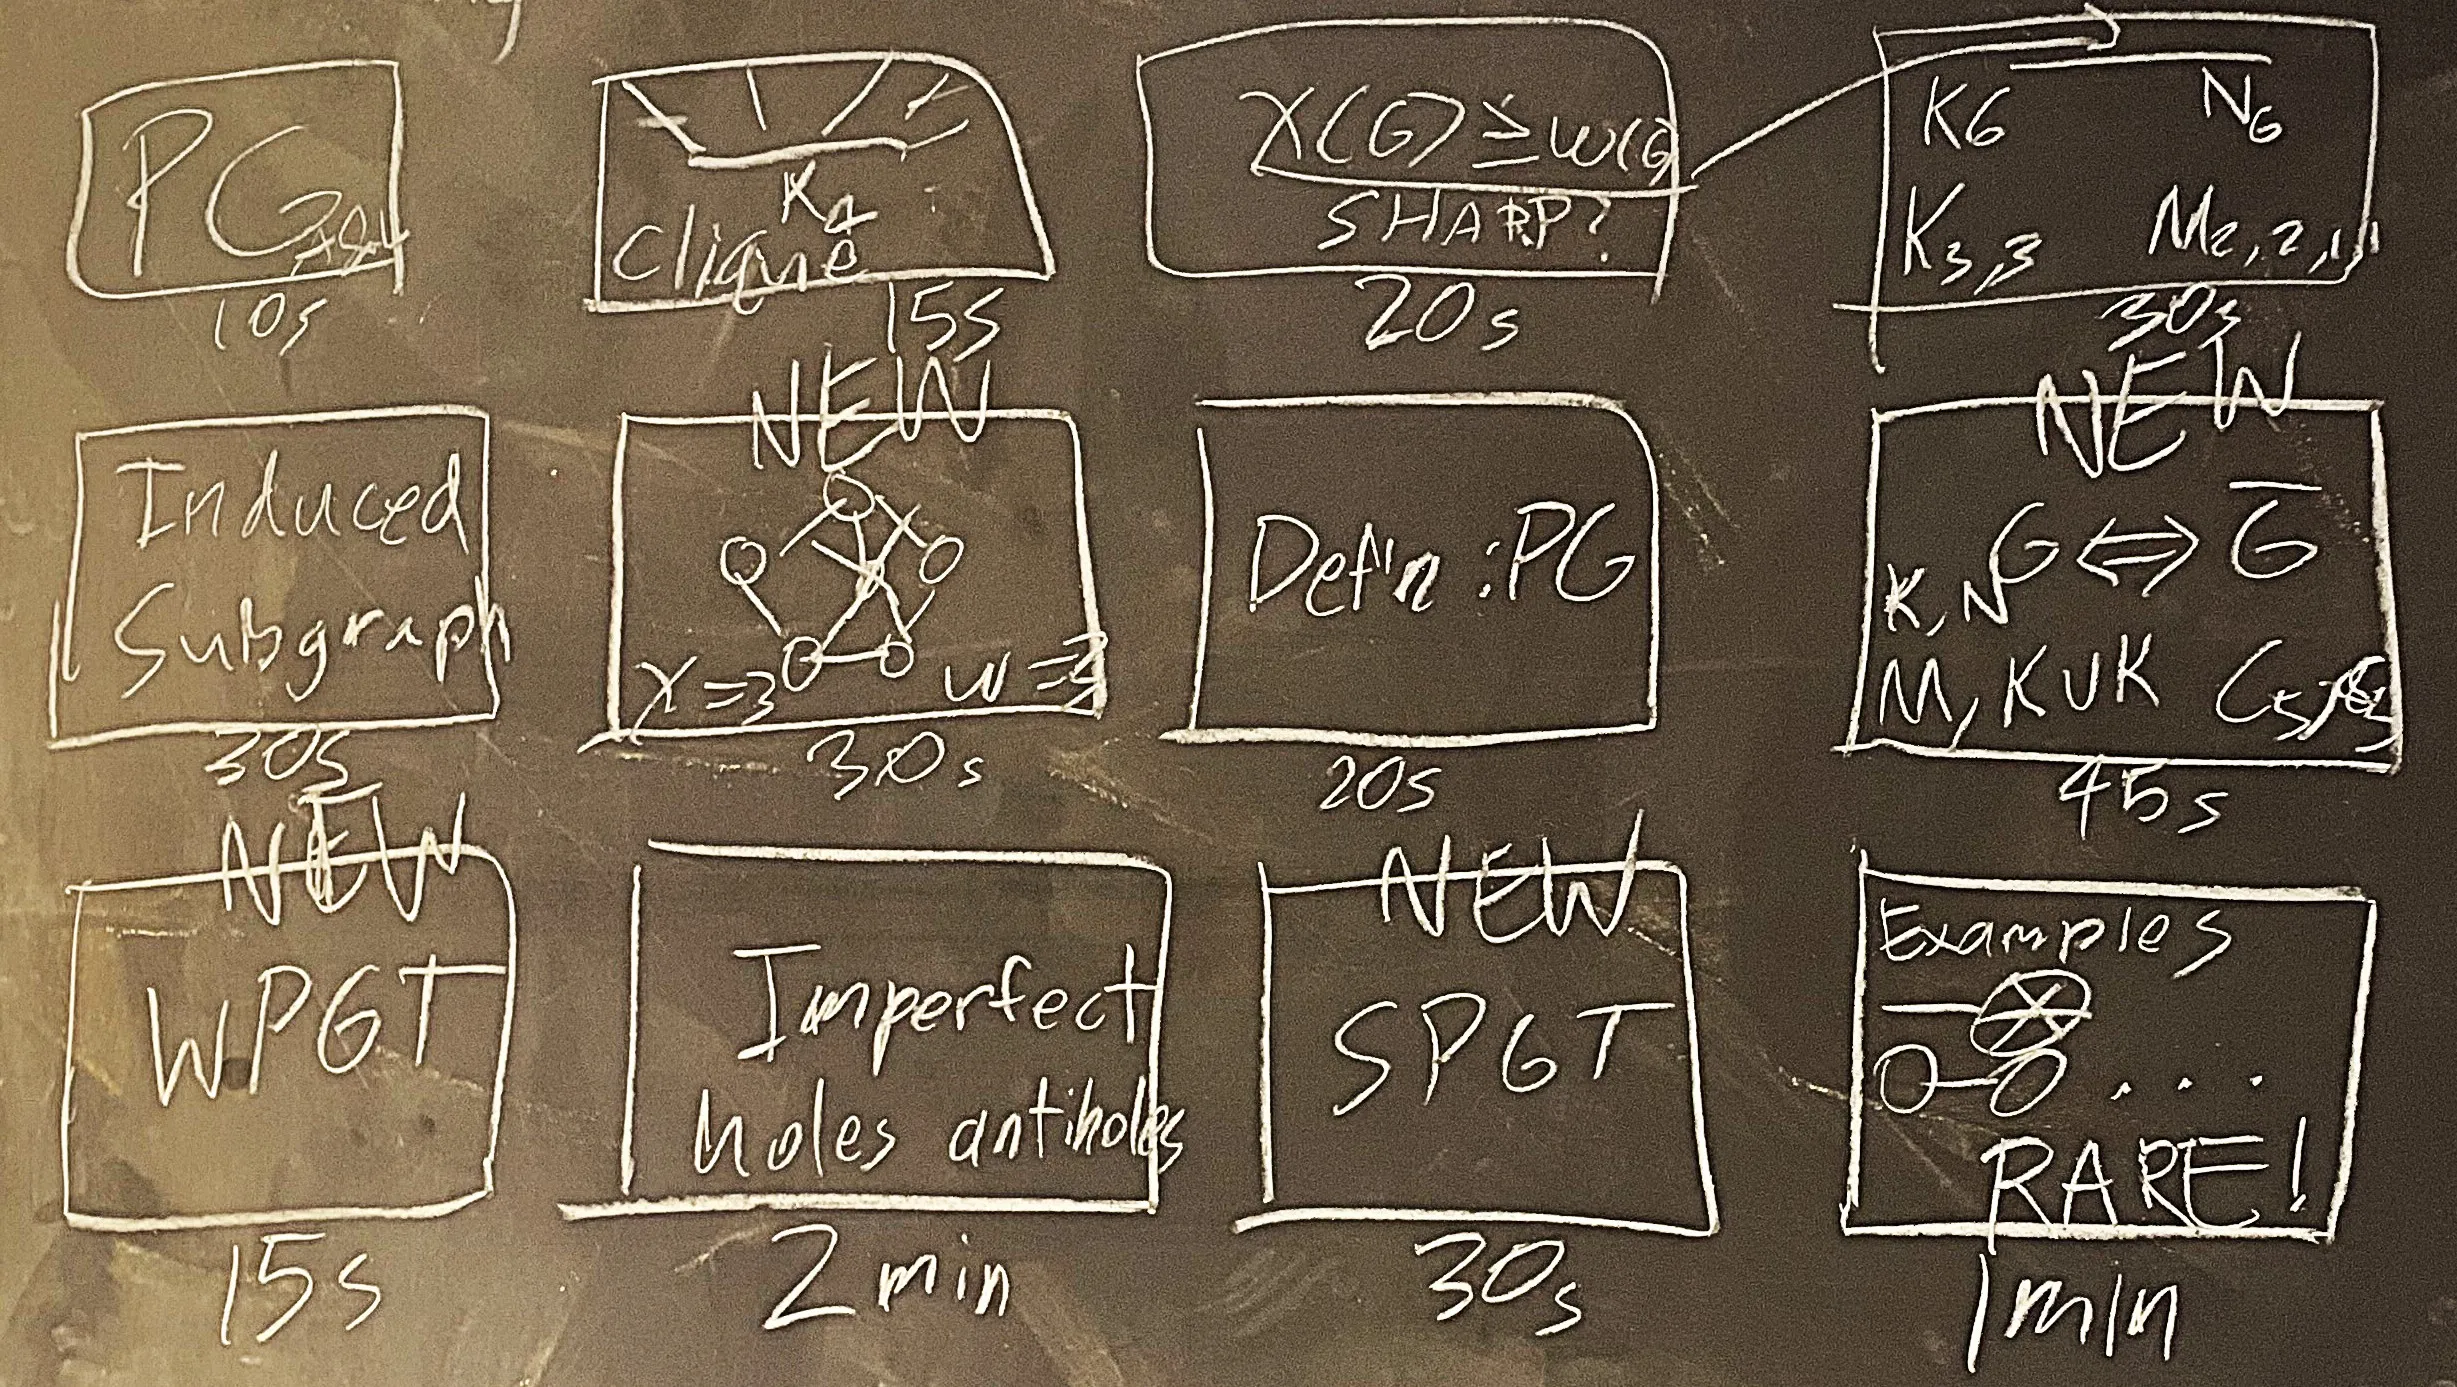 PG
10s
K4
Clique
15s
χ(G) ≥ ω(G)
SHARP?
20s
K6 N6
K3,3 M2,2,1,1
30s
Induced
Subgraph
30s
NEW
χ=3 ω=3
30s
Defin: PG
20s
NEW
G ⇔ G̅
K, N
M, K∪K C5,
45s
NEW
WPGT
15s
Imperfect
holes antiholes
2 min
NEW
SPGT
30s
Examples
...
RARE!
1min